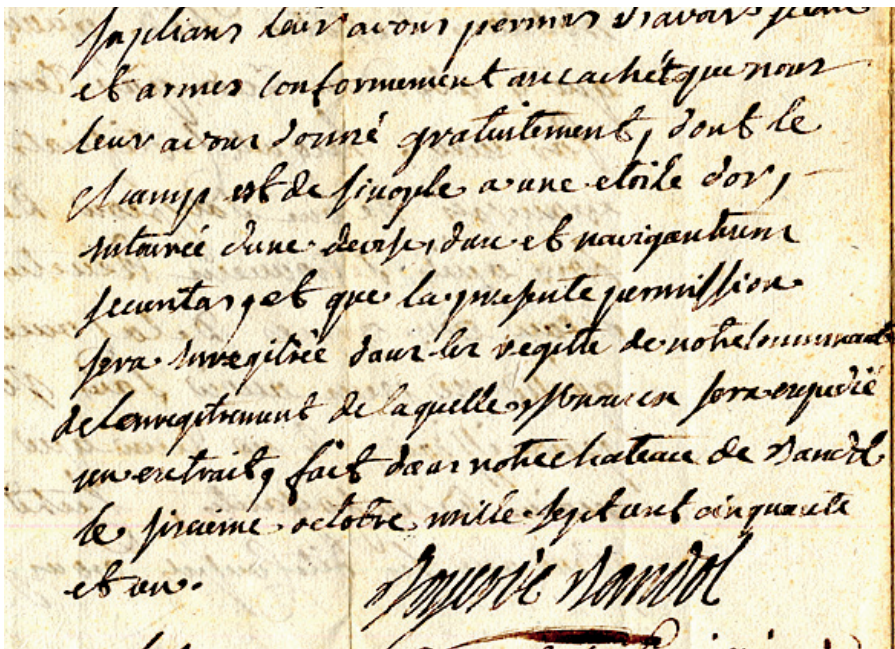 suplians leur avons permis d'avoir sceau
et armes conformement au cachet que nous
leur avons donné gratuitement, dont le
champ est de sinople a une etoile d'or,
entourée d'une devise, duce et navigantium
securitas, et que la presente permission
sera enregitrée dans les regitre de notre communauté
de l'enregitrement de laquelle il nous en sera expedié
un extrait, fait dans notre chateau de Bandol
le sixieme octobre mille sept cent cinquante
et un.
Boyer de Bandol